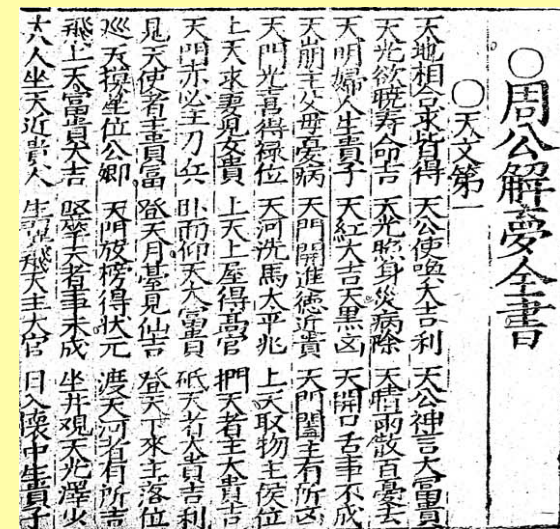 ○周公解夢全書
○天文第一
天地相合求皆得 天公使喚大吉利 天公神言大富貴
天光欲曉寿命吉 天光照身災病除 天晴雨散百憂去
天明婦人生貴子 天紅大吉天黑凶 天開口舌事不成
天崩主父母憂病 天門開進德近貴 天門闔主有所凶
天門光喜得祿位 天河洗馬太平兆 上天取物主侯位
上天求妻兒女貴 上天上屋得高官 捫天者主大貴吉
天門赤必主刀兵 卧而仰天大富貴 砥天者大貴吉利
見天使者主貴富 登天月臺見仙吉 登天下來主落位
巡天摸星位公卿 天門放榜得狀元 渡天河者有所吉
飛上天富貴大吉 擎天者事未成 坐井觀天光澤少
人坐天近貴人 生翼飛天主大官 日入懷中生貴子